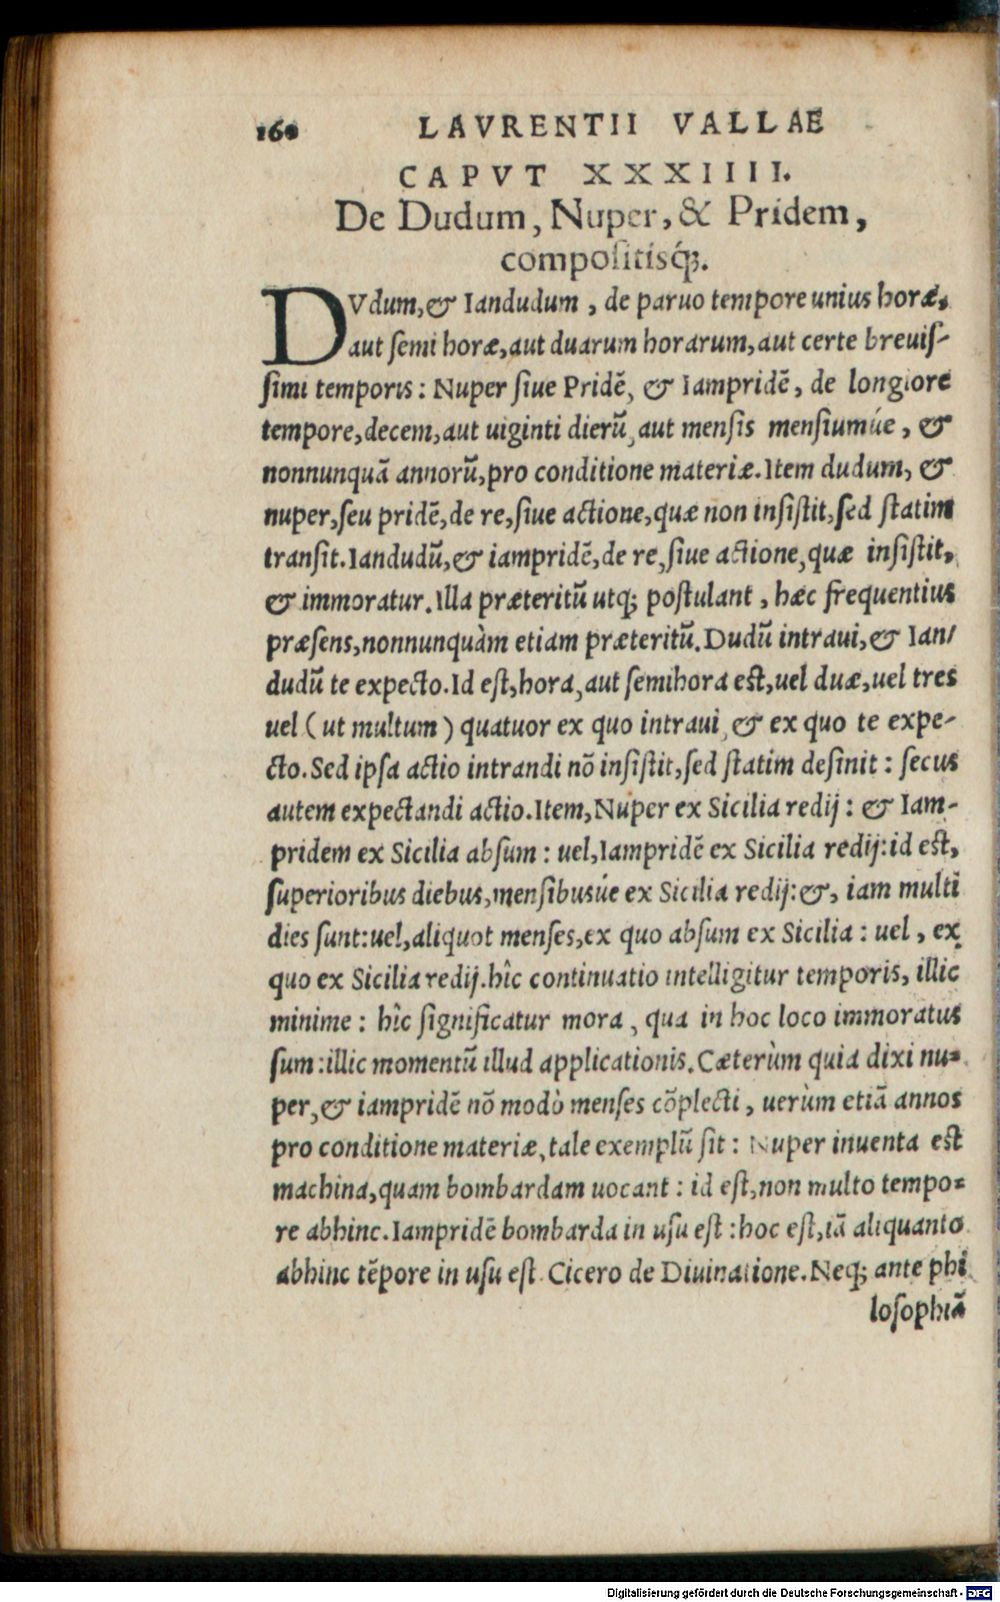 160 LAVRENTII VALLAE
CAPVT XXXIIII.
De Dudum, Nuper, & Pridem,
compoſitisq́;.
DVdum, & Iandudum, de paruo tempore unius horæ,
aut ſemi horæ, aut duarum horarum, aut certe breuiſ-
ſimi temporis: Nuper ſiue Pridē, & Iampridē, de longiore
tempore, decem, aut uiginti dierū, aut menſis menſiumúe, &
nonnunquā annorū, pro conditione materiæ. Item dudum, &
nuper, ſeu pridē, de re, ſiue actione, quæ non inſiſtit, ſed ſtatim
tranſit. Iandudū, & iampridē, de re, ſiue actione, quæ inſiſtit,
& immoratur. Illa præteritū utq; poſtulant, hæc frequentius
præſens, nonnunquàm etiam præteritū. Dudū intraui, & Ian/
dudū te expecto. Id eſt, hora, aut ſemihora eſt, uel duæ, uel tres
uel (ut multum) quatuor ex quo intraui, & ex quo te expe-
cto. Sed ipſa actio intrandi nō inſiſtit, ſed ſtatim deſinit: ſecus
autem expectandi actio. Item, Nuper ex Sicilia redij: & Iam-
pridem ex Sicilia abſum: uel, Iampridē ex Sicilia redij: id eſt,
ſuperioribus diebus, menſibusúe ex Sicilia redij: &, iam multi
dies ſunt: uel, aliquot menſes, ex quo abſum ex Sicilia: uel, ex
quo ex Sicilia redij. hîc continuatio intelligitur temporis, illic
minime: hîc ſignificatur mora, qua in hoc loco immoratus
ſum: illic momentū illud applicationis. Cæterùm quia dixi nu=
per, & iampridē nō modò menſes cōplecti, uerùm etiā annos
pro conditione materiæ, tale exemplū ſit: Nuper inuenta eſt
machina, quam bombardam uocant: id eſt, non multo tempo=
re abhinc. Iampridē bombarda in uſu eſt: hoc eſt, iā aliquanto
abhinc tēpore in uſu eſt. Cicero de Diuinatione. Neq; ante phi
loſophiā
Digitalisierung gefördert durch die Deutsche Forschungsgemeinschaft - DFG